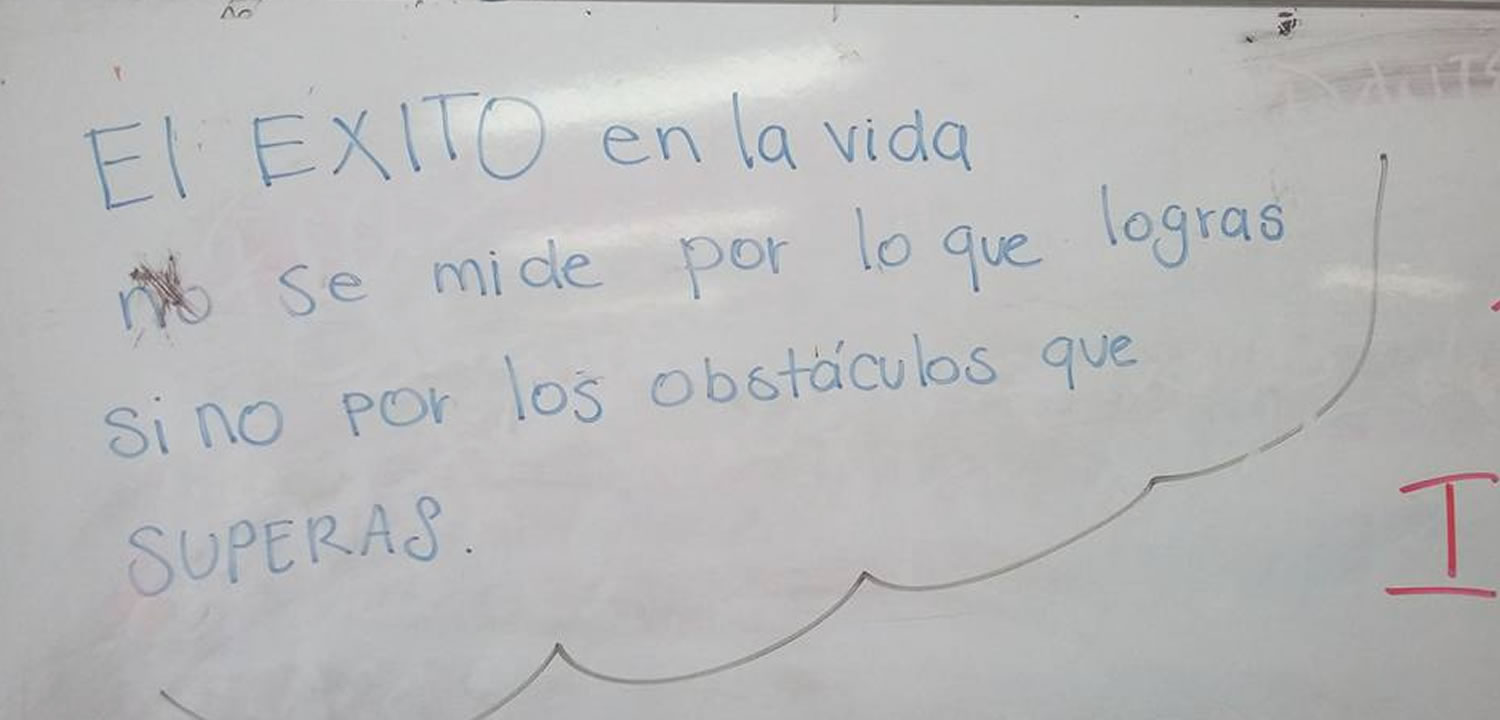 El EXITO en la vida
no se mide por lo que logras
sino por los obstáculos que
SUPERAS.
I